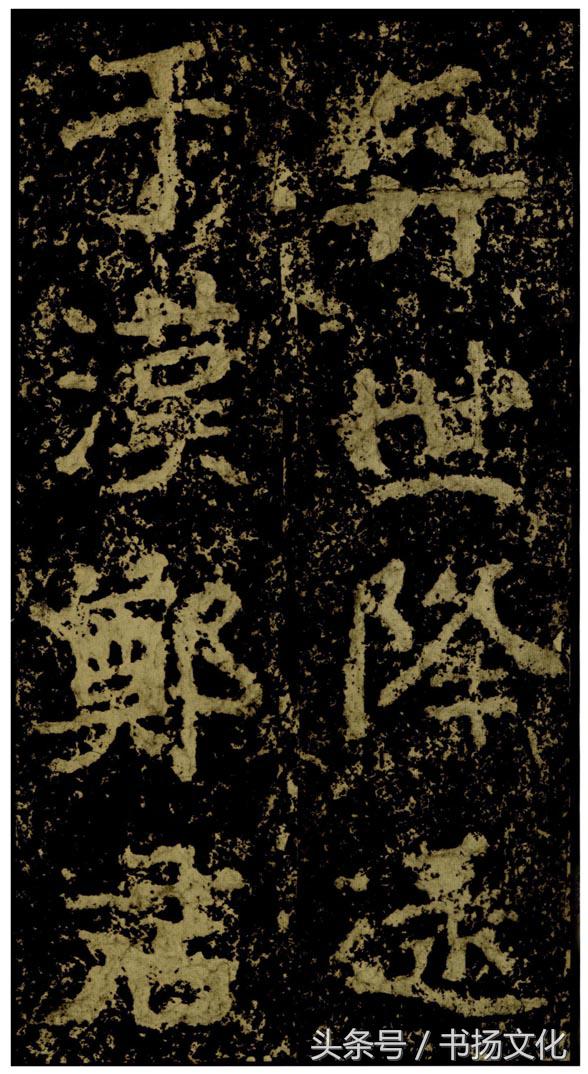 弈世降逮
于漢鄭君
头条号 / 书扬文化